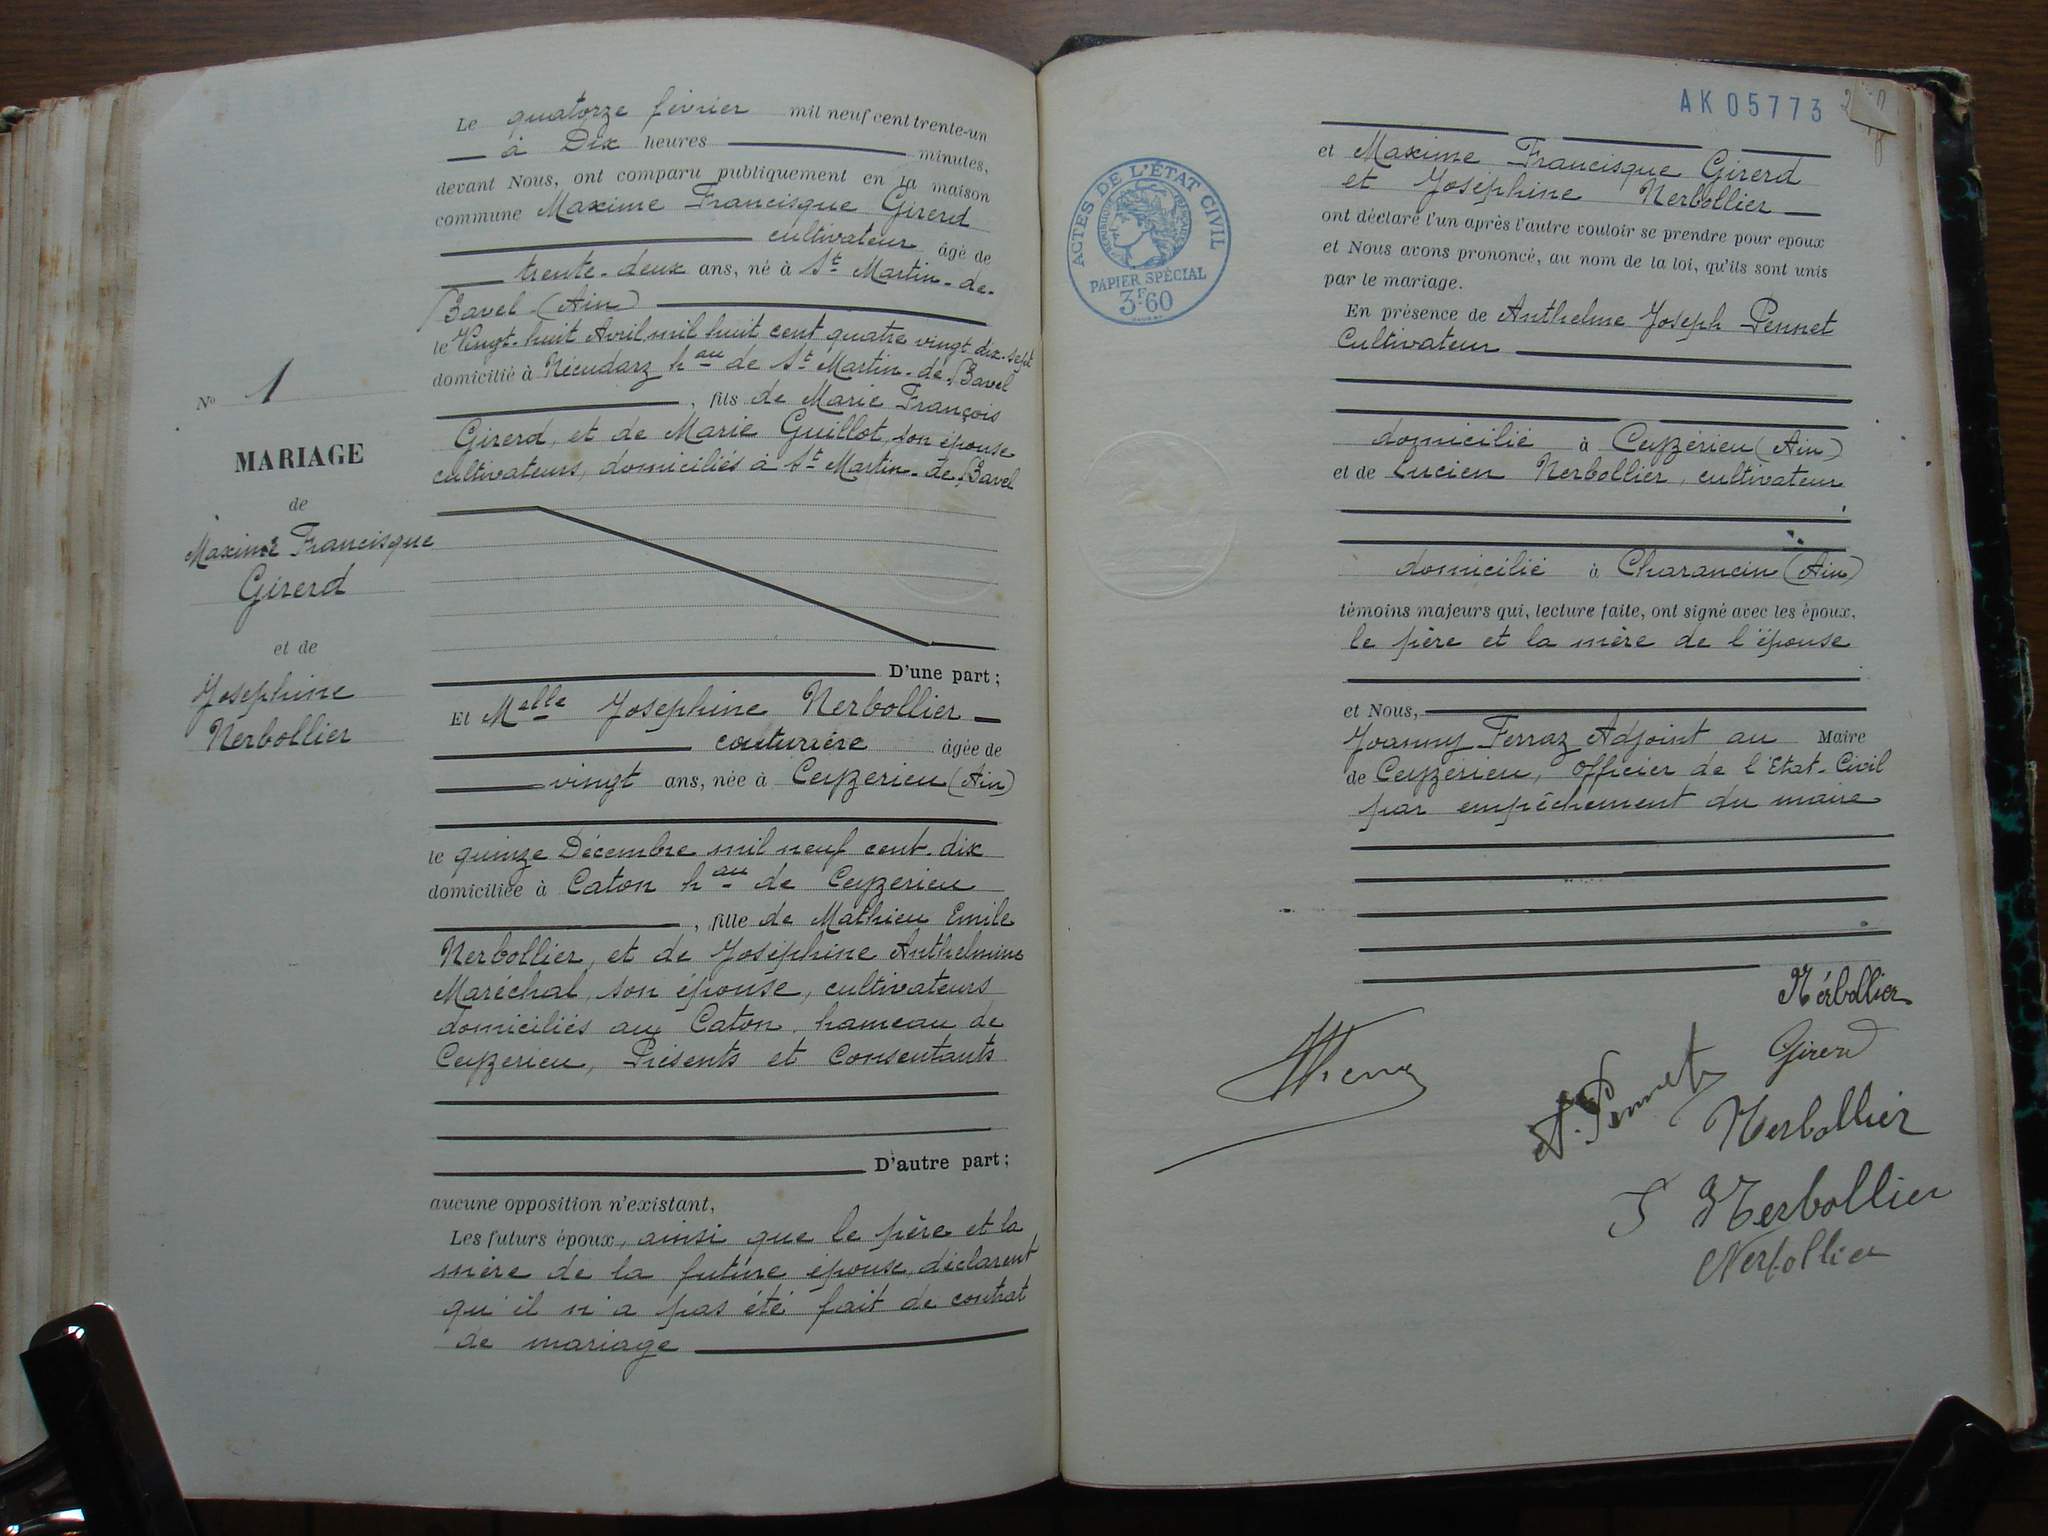 Le quatorze février mil neuf cent trente-un
à Dix heures minutes,
devant Nous, ont comparu publiquement en la maison
commune Maxime Francisque Girerd
cultivateur âgé de
trente-deux ans, né à St Martin-de-
Bavel (Ain)
le Vingt-huit Avril mil huit cent quatre vingt dix-sept
domicilié à hau de St Martin-de-Bavel
, fils de Marie François
Girerd, et de Marie Guillot, son épouse
cultivateurs, domiciliés à St Martin-de-Bavel
No 1
MARIAGE
de
Maxime Francisque
Girerd
et de
Josephine
Nerbollier
D'une part;
Et Melle Josephine Nerbollier
couturière âgée de
vingt ans, née à Ceyzerieu (Ain)
le quinze Décembre mil neuf cent-dix
domiciliée à Caton hau de Ceyzerieu
, fille de Mathieu Emile
Nerbollier, et de Joséphine Anthelmine
Maréchal, son épouse, cultivateurs
domiciliés au Caton, hameau de
Ceyzerieu, Présents et Consentants
D'autre part;
aucune opposition n'existant,
Les futurs époux, ainsi que le père et la
mère de la future épouse, déclarent
qu'il n'a pas été fait de contrat
de mariage
AK 05773
ACTES DE L'ÉTAT CIVIL
RÉPUBLIQUE FRANÇAISE
PAPIER SPÉCIAL
3F60
et Maxime Francisque Girerd
et Joséphine Nerbollier
ont déclaré l'un après l'autre vouloir se prendre pour epoux
et Nous avons prononcé, au nom de la loi, qu'ils sont unis
par le mariage.
En présence de Anthelme Joseph Pennet
Cultivateur
domicilié à Ceyzérieu (Ain)
et de Lucien Nerbollier, cultivateur
domicilié à Charancin (Ain)
témoins majeurs qui, lecture faite, ont signé avec les époux,
le père et la mère de l'épouse
et Nous,
Joanny Ferraz Adjoint au Maire
de Ceyzérieu, Officier de l'Etat-Civil
par empêchement du maire
Nérbollier
Girerd
A. Pennet
Nerbollier
J Nerbollier
Nerbollier